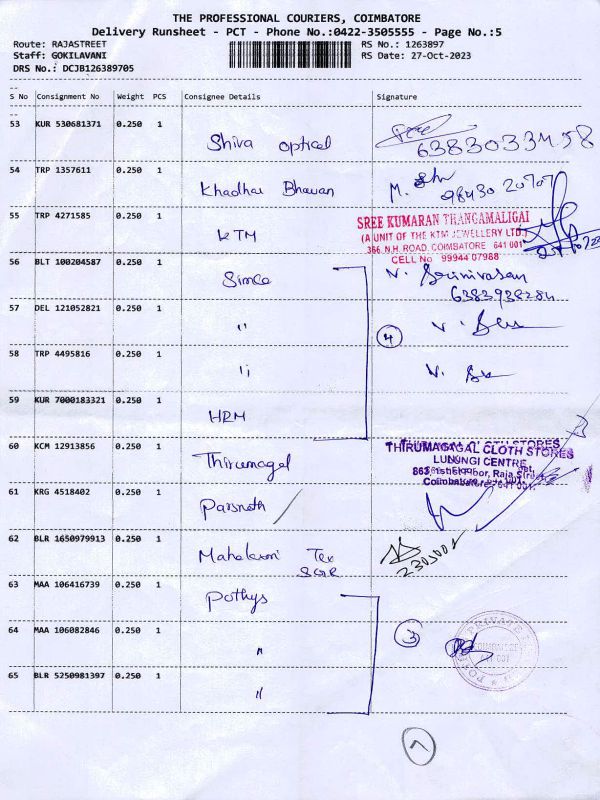 THE PROFESSIONAL COURIERS, COIMBATORE
Delivery Runsheet - PCT - Phone No.:0422-3505555 - Page No.:5
Route: RAJASTREET
Staff: GOKILAVANI
DRS No.: DCJB126389705
RS No.: 1263897
RS Date: 27-Oct-2023
S No Consignment No Weight PCS Consignee Details Signature
53 KUR 530681371 0.250 1 Shiva optical 6383033458
54 TRP 1357611 0.250 1 Khadhai Bhavan M.
98430 20707
55 TRP 4271585 0.250 1 KTM
SREE KUMARAN THANGAMALIGAI
(A UNIT OF THE KTM JEWELLERY LTD.)
366, N.H. ROAD, COIMBATORE 641 001
CELL No 99944 07988
56 BLT 100204587 0.250 1 Simca V. Srinivasan
6383938284
57 DEL 121052821 0.250 1 " V.
4
58 TRP 4495816 0.250 1 " V.
59 KUR 7000183321 0.250 1 HRM
60 KCM 12913856 0.250 1 Thirumagal
THIRUMAGAGAL CLOTH STORES
LUNUNGI CENTRE
61 KRG 4518402 0.250 1 Parsnath
62 BLR 1650979913 0.250 1 Mahalaxmi Tex
SGR
63 MAA 106416739 0.250 1 Pothys
64 MAA 106082846 0.250 1 " 3
65 BLR 5250981397 0.250 1 "